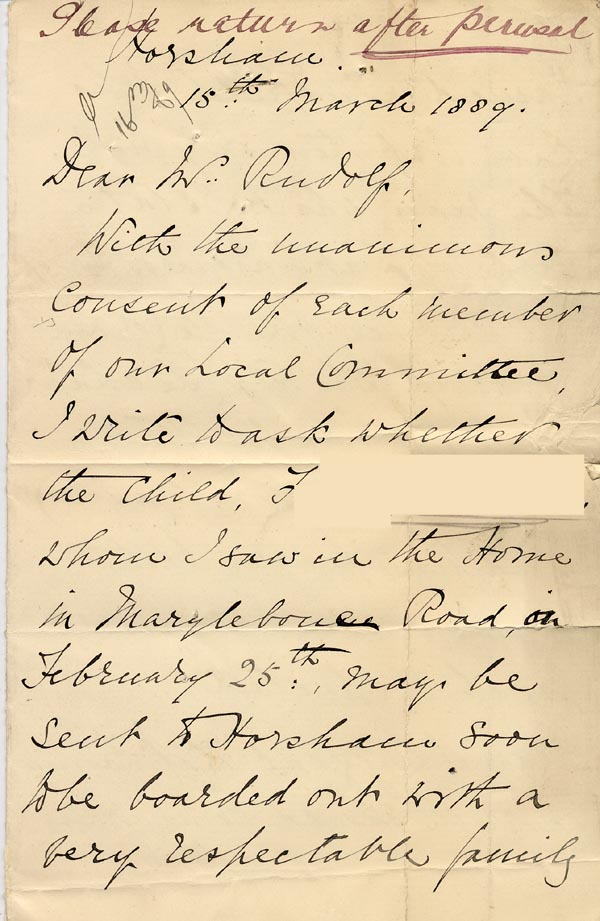 Please return after perusal
Horsham.
15th March 1889.
16/3/89
Dear Mr. Rudolf,
With the unanimous
Consent of each member
of our Local Committee,
I write to ask whether
the Child, F
whom I saw in the Home
in Marylebone Road, on
February 25th, may be
sent to Horsham soon
to be boarded out with a
very respectable family